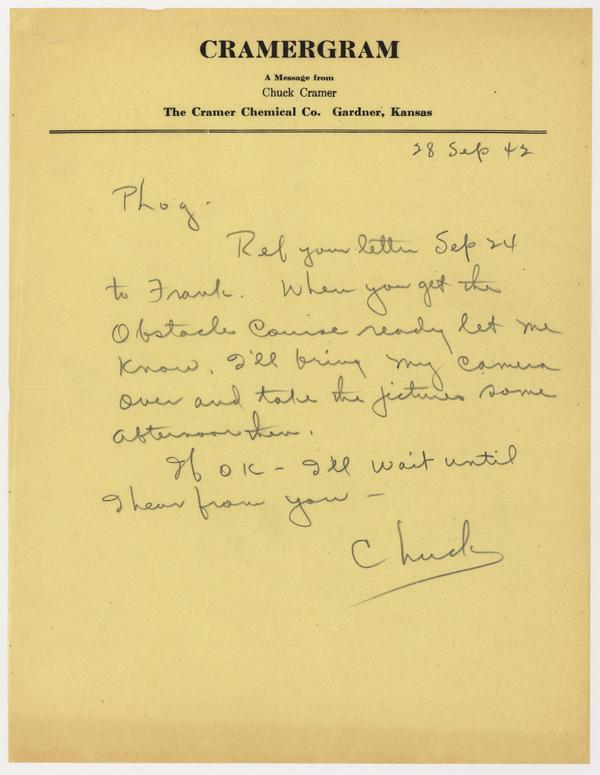 CRAMERGRAM
A Message from
Chuck Cramer
The Cramer Chemical Co. Gardner, Kansas
28 Sep 42
Phog.
Ref your letter Sep 24
to Frank. When you get the
Obstacle Course ready let me
know. I'll bring my camera
over and take the pictures some
afternoon then.
If OK - I'll wait until
I hear from you -
Chuck